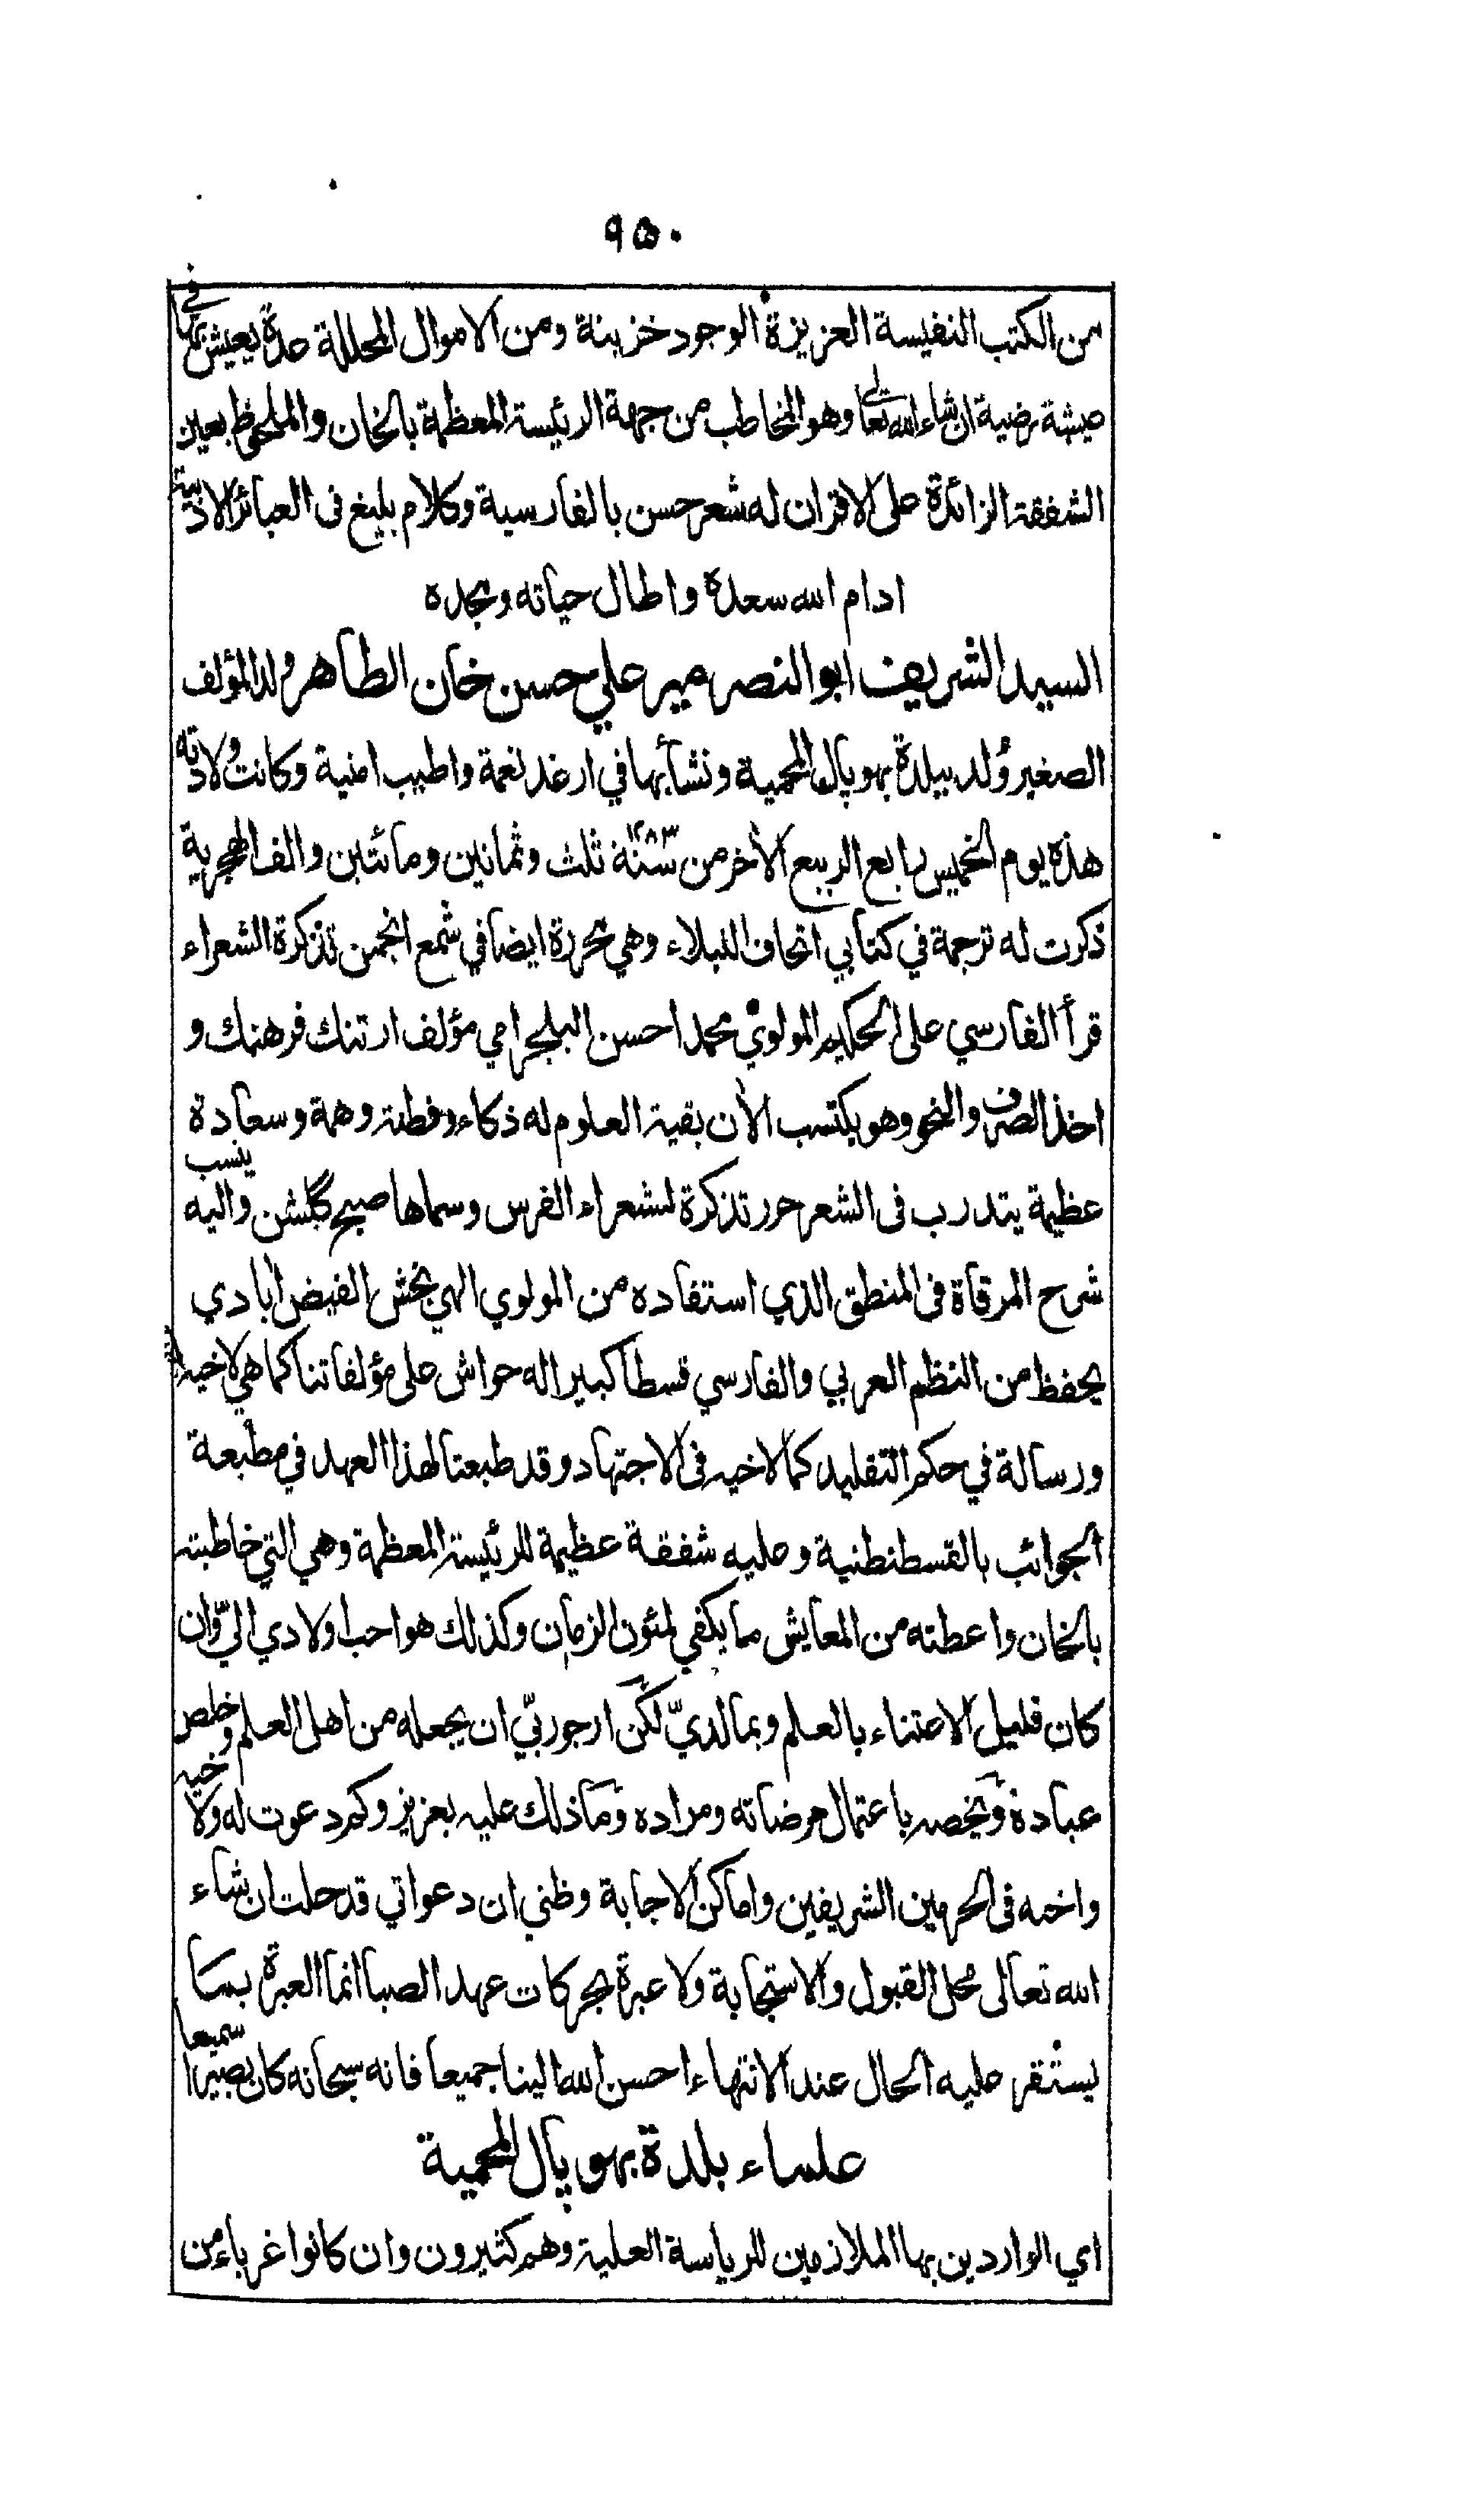 ٩٥٠
من الكتب النفيسة العزيزة الوجود خزينة ومن الاموال المحللة عدة يعيش بها في
عيشة رضية ان شاء الله تعالى وهو المخاطب من جهة الرئيسة المعظمة بالخان والملحوظ بعين
الشفقة الزائدة على الاقران له شعر حسن بالفارسية وكلام بليغ فى العبائر الادبية
ادام الله سعده واطال حياته ومجده
السيد الشريف ابو النصر مير علي حسن خان الطاهر ولد المؤلف
الصغير وُلد ببلدة بهوپال المحمية ونشأ بها في ارغد نعمة واطيب امنية وكانت ولادته
هذه يوم الخميس رابع الربيع الآخر من ١٢٨٣ سنة ثلث وثمانين ومائتين والف الهجرية
ذكرت له ترجمة في كتابي اتحاف النبلاء وهي محررة ايضا في شمع انجمن تذكرة الشعراء
قرأ الفارسي على الحكيم المولوي محمد احسن البلجرامي مؤلف ارتنك فرهنك و
اخذ الصرف والنحو وهو يكتسب الآن بقية العلوم له ذكاء وفطنة وهمة وسعادة
عظيمة يتدرب فى الشعر حرر تذكرة لشعراء الفرس وسماها صبح گلشن واليه ينسب
شرح المرقاة فى المنطق الذي استفاده من المولوي الهي بخش الفيض ابادي
يحفظ من النظم العربي والفارسي قسطا كبيرا له حواش على مؤلفاتنا كما هي لاخيه
ورسالة في حكم التقليد كما لاخيه فى الاجتهاد وقد طبعتا لهذا العهد في مطبعة
الجوائب بالقسطنطنية وعليه شفقة عظيمة للرئيسة المعظمة وهي التي خاطبته
بالخان واعطته من المعايش ما يكفي لمئون الزمان وكذلك هو احب اولادي اليّ وان
كان قليل الاعتناء بالعلم وبما لديّ لكن ارجو ربّي ان يجعله من اهل العلم وخلص
عباده ويخصه باعتمال مرضاته ومراده وما ذلك عليه بعزيز وكم دعوت له ولاخيه
واخته فى الحرمين الشريفين واماكن الاجابة وظني ان دعواتي قد حلت ان شاء
الله تعالى محل القبول والاستجابة ولا عبرة بحركات عهد الصبا انما العبرة بما
يستقر عليه الحال عند الانتهاء احسن الله الينا جميعا فانه سبحانه كان سميعا بصيرا
علماء بلدة بهوپال المحمية
اي الواردين بها الملازمين للرياسة العلية وهم كثيرون وان كانوا غرباء من